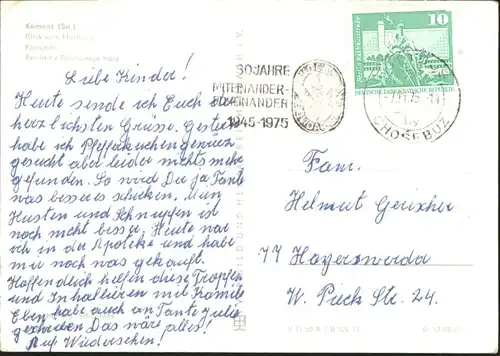 Kamenz (Sa.)
Blick vom
Kamjenc
Liebe Kinder!
Heute sende ich Euch die
herzlichsten Grüsse. Gestern
habe ich Pfefferkuchengewürz
gesucht aber leider nichts mehr
gefunden. So wird Dir ja Tante
was besseres schicken. Mein
Husten und Schnupfen ist
noch nicht besser. Heute war
ich in der Apoteke und habe
mir noch was gekauft.
Hoffendlich helfen diese Tropfen
und Inhallieren mit Kamile
Eben habe auch an Tante Julie
geschrieben Das wäre alles!
Auf Wiedersehen!
30 JAHRE
MITEINANDER-
FÜREINANDER
1945-1975
10
DEUTSCHE DEMOKRATISCHE REPUBLIK
CHOSEBUZ
Fam.
Helmut Gerischer
77 Hoyerswerda
W. Pieck Str. 24.